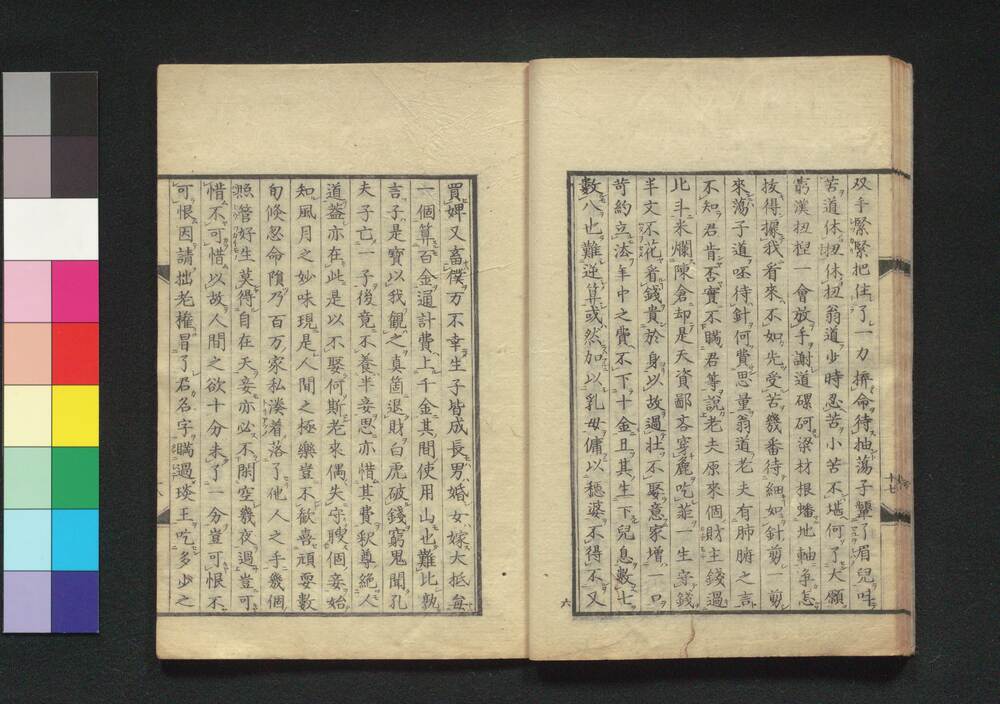 双手緊緊把住了一力拚命待抽蕩子顰了眉兒叫
苦道休扭休扭翁道少時忍苦小苦不堪何了大願
窮漢扭捏一會放手謝道磥砢梁材根蟠地軸争怎
抜得攞我看來不如先受苦幾番待細如針剪一剪
來蕩子道呸待針何費思量翁道老夫有肺腑之言
不知君肯否實不瞞君等說老夫原來個財主錢過
比斗米爛陳倉却是天資鄙吝穿麁吃菲一生守錢
半文不花着錢貴於身以故過壮不娶意家增一口
苛約立法年中之費不下十金且其生下兒息數七
數八也難逆算或然加以乳母傭以穩婆不得不又
買婢又畜僕万不幸生子皆成長男婚女嫁大抵每
一個算百金通計費上千金其間使用山也難比孰
言子是寳以我觀之真箇退財白虎破錢窮鬼聞孔
夫子亡一子後竟不養半妾思亦惜其費釈尊絶人
道蓋亦在此是以不娶何斯老來偶失守腰個妾始
知風月之妙味現是人間之極樂豈不歓喜頑耍數
旬倐忽命隕乃百万家私湊着落了他人之手幾個
照管好生莫得自在天妾亦必不閑空幾夜過豈可
惜不可惜以故人間之欲十分未了一分豈可恨不
可恨因請拙老権冒了君名字瞞過琰王吃多少之
十七
六